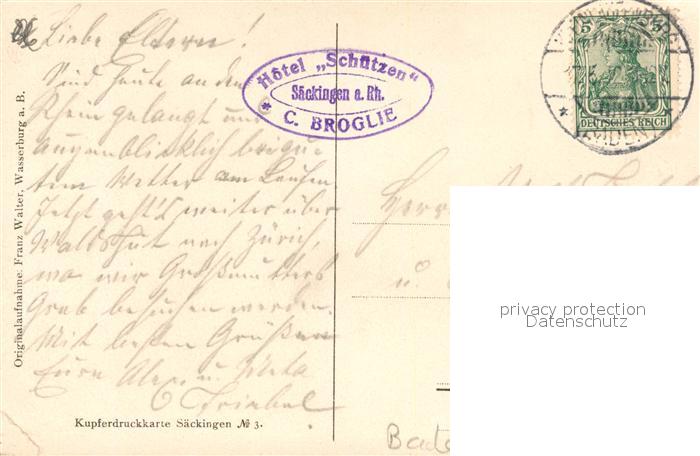 Liebe Eltern!
Sind heute an den
Rhein gelangt und
augenblicklich bei gu-
tem Wetter am Laufen.
Jetzt geht's weiter über
Waldshut nach Zürich,
wo wir Großmutters
Grab besuchen werden.
Mit besten Grüßen
Eure Alex u. Meta
Hôtel „Schützen“
Säckingen a. Rh.
* C. BROGLIE
5
DEUTSCHES REICH
Herrn
u.
privacy protection
Datenschutz
Originalaufnahme: Franz Walter, Wasserburg a. B.
Kupferdruckkarte Säckingen № 3.